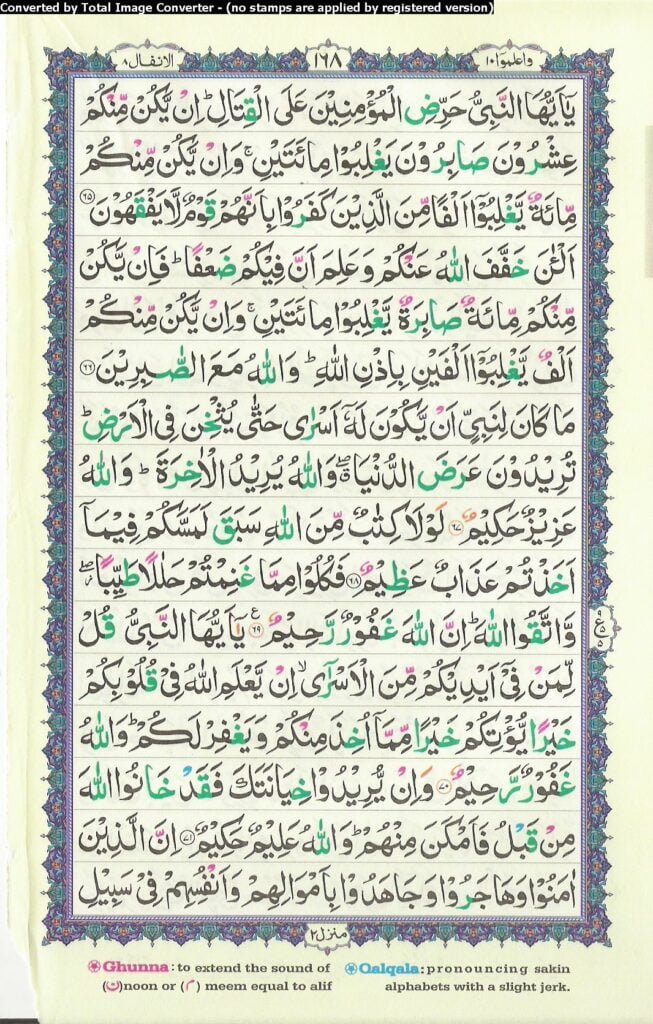 Converted by Total Image Converter - (no stamps are applied by registered version)
واعلموا ١٠
١٦٨
الانفال ٨
يٰۤاَيُّهَا النَّبِيُّ حَرِّضِ الْمُؤْمِنِيْنَ عَلَى الْقِتَالِ ؕ اِنْ يَّكُنْ مِّنْكُمْ
عِشْرُوْنَ صَابِرُوْنَ يَغْلِبُوْا مِائَتَيْنِ ۚ وَاِنْ يَّكُنْ مِّنْكُمْ
مِّائَةٌ يَّغْلِبُوْۤا اَلْفًا مِّنَ الَّذِيْنَ كَفَرُوْا بِاَنَّهُمْ قَوْمٌ لَّا يَفْقَهُوْنَ ۝۶۵
اَلْـٰٔنَ خَفَّفَ اللّٰهُ عَنْكُمْ وَعَلِمَ اَنَّ فِيْكُمْ ضَعْفًا ؕ فَاِنْ يَّكُنْ
مِّنْكُمْ مِّائَةٌ صَابِرَةٌ يَّغْلِبُوْا مِائَتَيْنِ ۚ وَاِنْ يَّكُنْ مِّنْكُمْ
اَلْفٌ يَّغْلِبُوْۤا اَلْفَيْنِ بِاِذْنِ اللّٰهِ ؕ وَاللّٰهُ مَعَ الصّٰبِرِيْنَ ۝۶۶
مَا كَانَ لِنَبِيٍّ اَنْ يَّكُوْنَ لَهٗۤ اَسْرٰى حَتّٰى يُثْخِنَ فِى الْاَرْضِ ؕ
تُرِيْدُوْنَ عَرَضَ الدُّنْيَا ۖۗ وَاللّٰهُ يُرِيْدُ الْاٰخِرَةَ ؕ وَاللّٰهُ
عَزِيْزٌ حَكِيْمٌ ۝۶۷ لَوْلَا كِتٰبٌ مِّنَ اللّٰهِ سَبَقَ لَمَسَّكُمْ فِيْمَاۤ
اَخَذْتُمْ عَذَابٌ عَظِيْمٌ ۝۶۸ فَكُلُوْا مِمَّا غَنِمْتُمْ حَلٰلًا طَيِّبًا ۖؗ
وَّاتَّقُوا اللّٰهَ ؕ اِنَّ اللّٰهَ غَفُوْرٌ رَّحِيْمٌ ۝۶۹ يٰۤاَيُّهَا النَّبِيُّ قُلْ
لِّمَنْ فِىْۤ اَيْدِيْكُمْ مِّنَ الْاَسْرٰٓى ۙ اِنْ يَّعْلَمِ اللّٰهُ فِىْ قُلُوْبِكُمْ
خَيْرًا يُّؤْتِكُمْ خَيْرًا مِّمَّاۤ اُخِذَ مِنْكُمْ وَيَغْفِرْ لَكُمْ ؕ وَاللّٰهُ
غَفُوْرٌ رَّحِيْمٌ ۝۷۰ وَاِنْ يُّرِيْدُوْا خِيَانَتَكَ فَقَدْ خَانُوا اللّٰهَ
مِنْ قَبْلُ فَاَمْكَنَ مِنْهُمْ ؕ وَاللّٰهُ عَلِيْمٌ حَكِيْمٌ ۝۷۱ اِنَّ الَّذِيْنَ
اٰمَنُوْا وَهَاجَرُوْا وَجَاهَدُوْا بِاَمْوَالِهِمْ وَاَنْفُسِهِمْ فِىْ سَبِيْلِ
منزل ٢
Ghunna: to extend the sound of
(ن) noon or (م) meem equal to alif
Qalqala: pronouncing sakin
alphabets with a slight jerk.